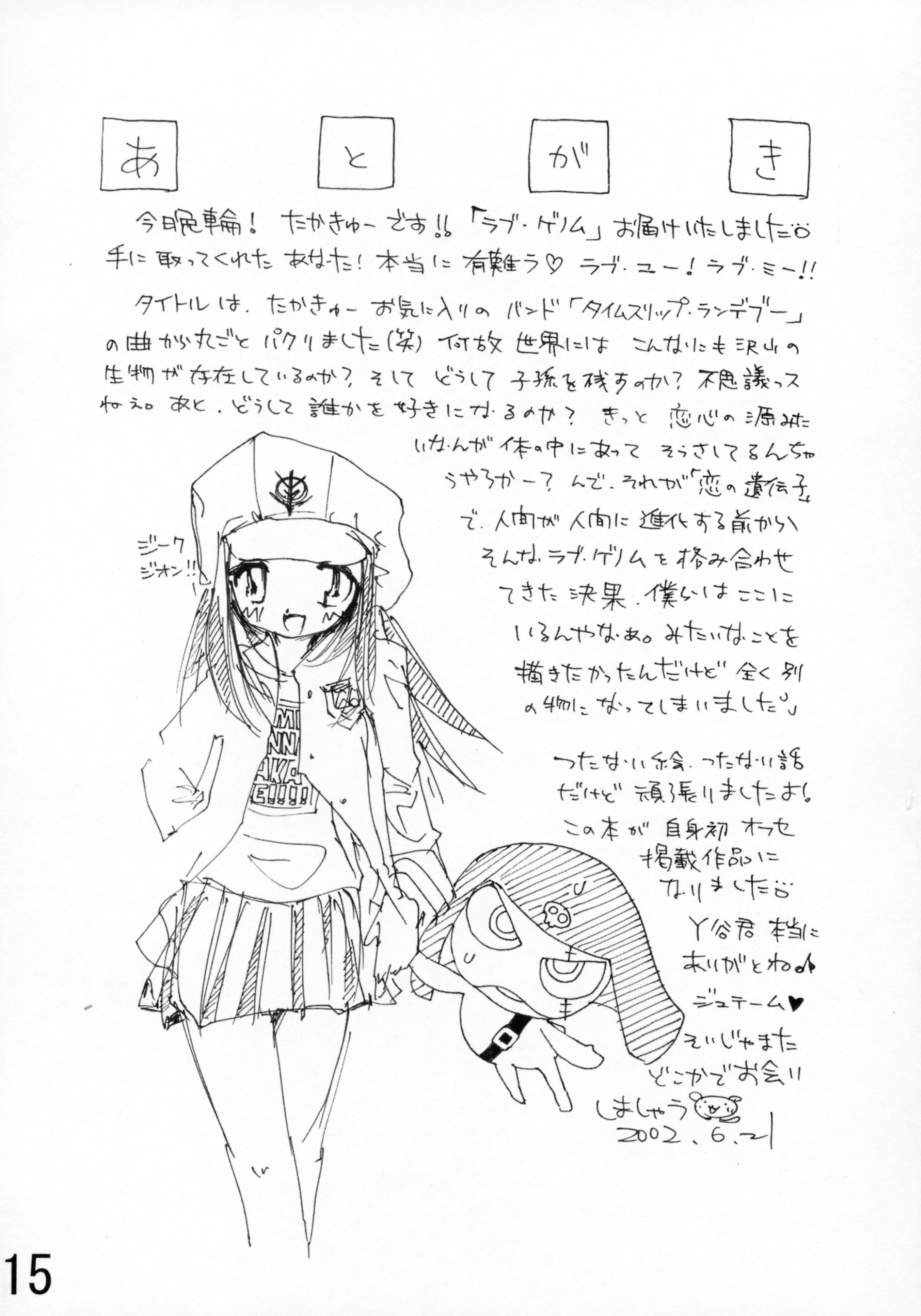 あとがき
今日皀輪! たかきゅーです!!「ラブ・ゲノム」お届けいたしました
手に取ってくれた あなた! 本当に有難ラ♡ ラブ・ユー! ラブ・ミー!!
タイトルは、たかきゅー お気に入りの バンド「タイムスリップ・ランデブー」
の曲から丸ごと パクリました(笑) 何故 世界には こんなにも沢山の
生物が存在しているのか? そして どうして 子孫を残すのか? 不思議ッス
ねぇ。あと、どうして 誰かを 好きになるのか? きっと 恋心の源みた
いなんが 体の中にあって そうさしてるんちゃ
うやろかー? んで、それが「恋の遺伝子」
で、人間が 人間に 進化する前から
そんな ラブ・ゲノム を 絡み合わせ
てきた 決果、僕らは ここに
いるんやなぁ。みたいなことを
描きたかったんだけど 全く別
の物に なってしまいました。
ジーク
ジオン!!
MI
NN
AKA
E!!!!
つたない絵、つたない話
だけど 頑張りましたよ!
この本が 自身初 オフセ
掲載作品に
なりました
丫谷君 本当に
ありがとね♪
ジュテーム♥
そいじゃまた
どこかでお会い
しましゃう
2002.6.21
15